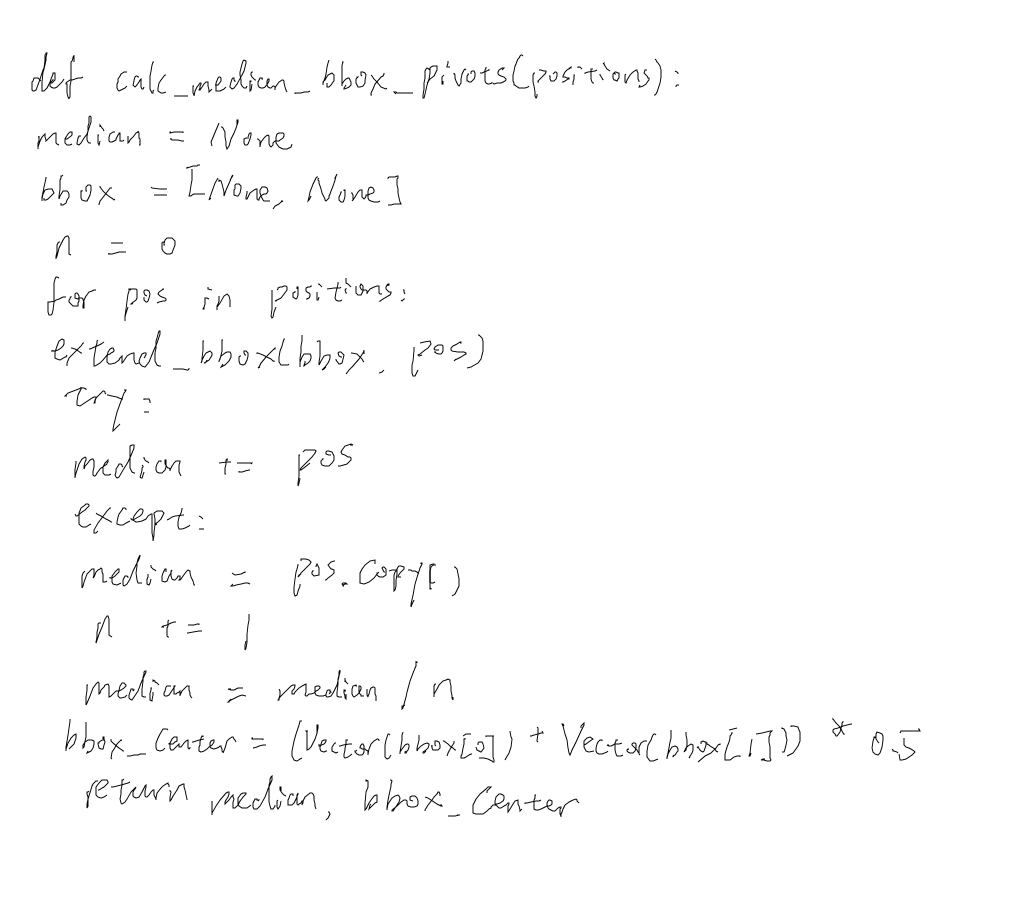 def calc_median_bbox_pivots(positions):
median = None
bbox = [None, None]
n = 0
for pos in positions:
extend_bbox(bbox, pos)
try:
median += pos
except:
median = pos.copy()
n += 1
median = median / n
bbox_center = (Vector(bbox[0]) + Vector(bbox[1])) * 0.5
return median, bbox_center